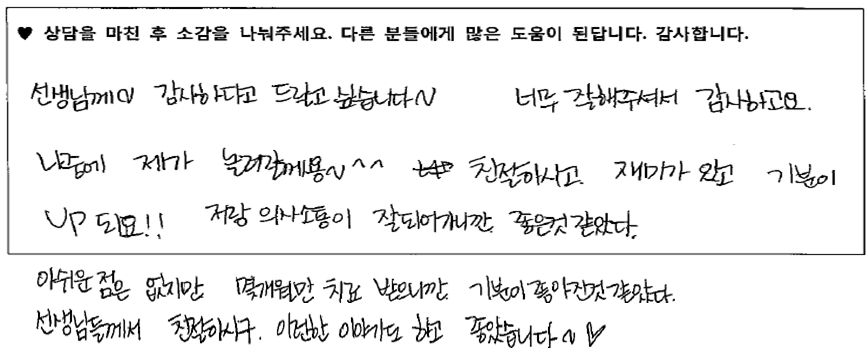 ♥ 상담을 마친 후 소감을 나눠주세요. 다른 분들에게 많은 도움이 된답니다. 감사합니다.
선생님께~ 감사하다고 드리고 싶습니다~ 너무 잘해주셔서 감사하고요.
나중에 제가 놀러갈께용~^^ 친절하시고 재미가 있고 기분이
UP 되요!! 저랑 의사소통이 잘되어가니깐 좋은것 같았다.
아쉬운 점은 없지만 몇개월만 치료 받으니깐 기분이 좋아진것 같았다.
선생님들께서 친절하시구. 이런한 이야기도 하고 좋았습니다~ ♡